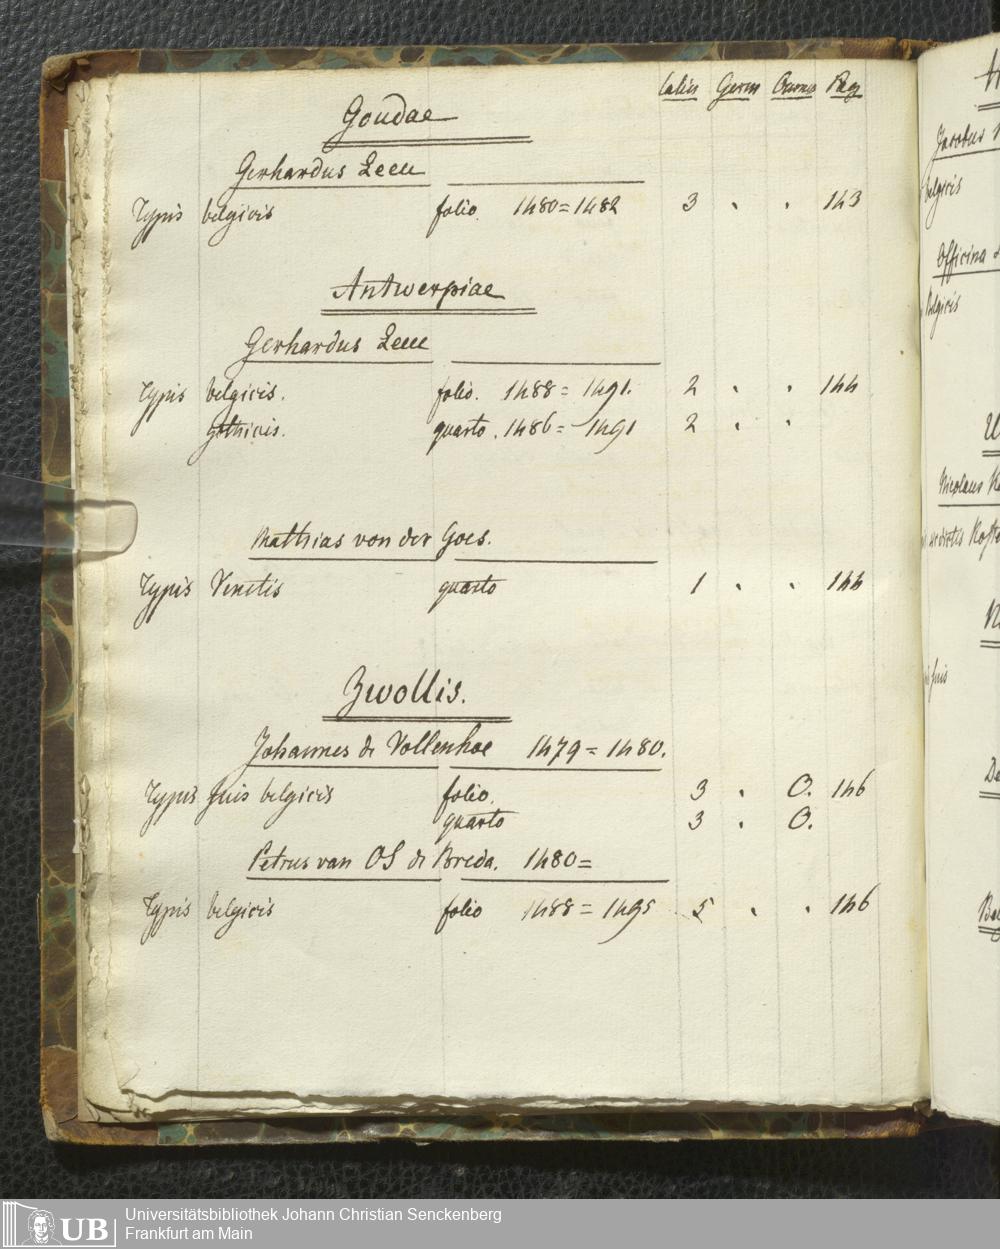 Latin Germ Pag
Goudae
Gerhardus Leeu
Typis belgicis folio. 1480=1482 3 . . 143
Antwerpiae
Gerhardus Leeu
Typis belgicis. folio. 1488 = 1491. 2 . . 144
gothicis. quarto. 1486 = 1491 2 . .
Mathias von der Goes.
Typis Venetis quarto 1 . . 144
Zwollis.
Johannes de Vollenhoe 1479 = 1480.
Typis suis belgicis folio. 3 . O. 146
quarto 3 . O.
Petrus van OS de Breda. 1480=
Typis belgicis folio 1488 = 1495 5 . . 146
Jacobus
belgicis
Officina
Belgicis
Nicolaus
UB
Universitätsbibliothek Johann Christian Senckenberg
Frankfurt am Main